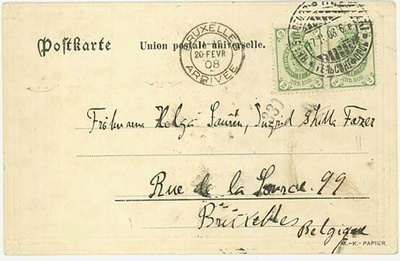 Postkarte
Union postale universelle.
BRUXELLES
20 FEVR
08
ARRIVÉE
Frökarna Helga Saurén, Ingrid Fazer
Rue de la Source. 99
Bruxelles
Belgique
M.-K.- PAPIER.